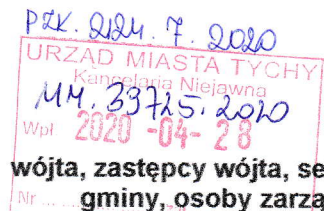 PZK. 2124. 7. 2020
URZĄD MIASTA TYCHY
Kancelaria Niejawna
MM. 33725.2020
Wpł 2020 -04- 28
wójta, zastępcy wójta, se
Nr
gminy, osoby zarzą